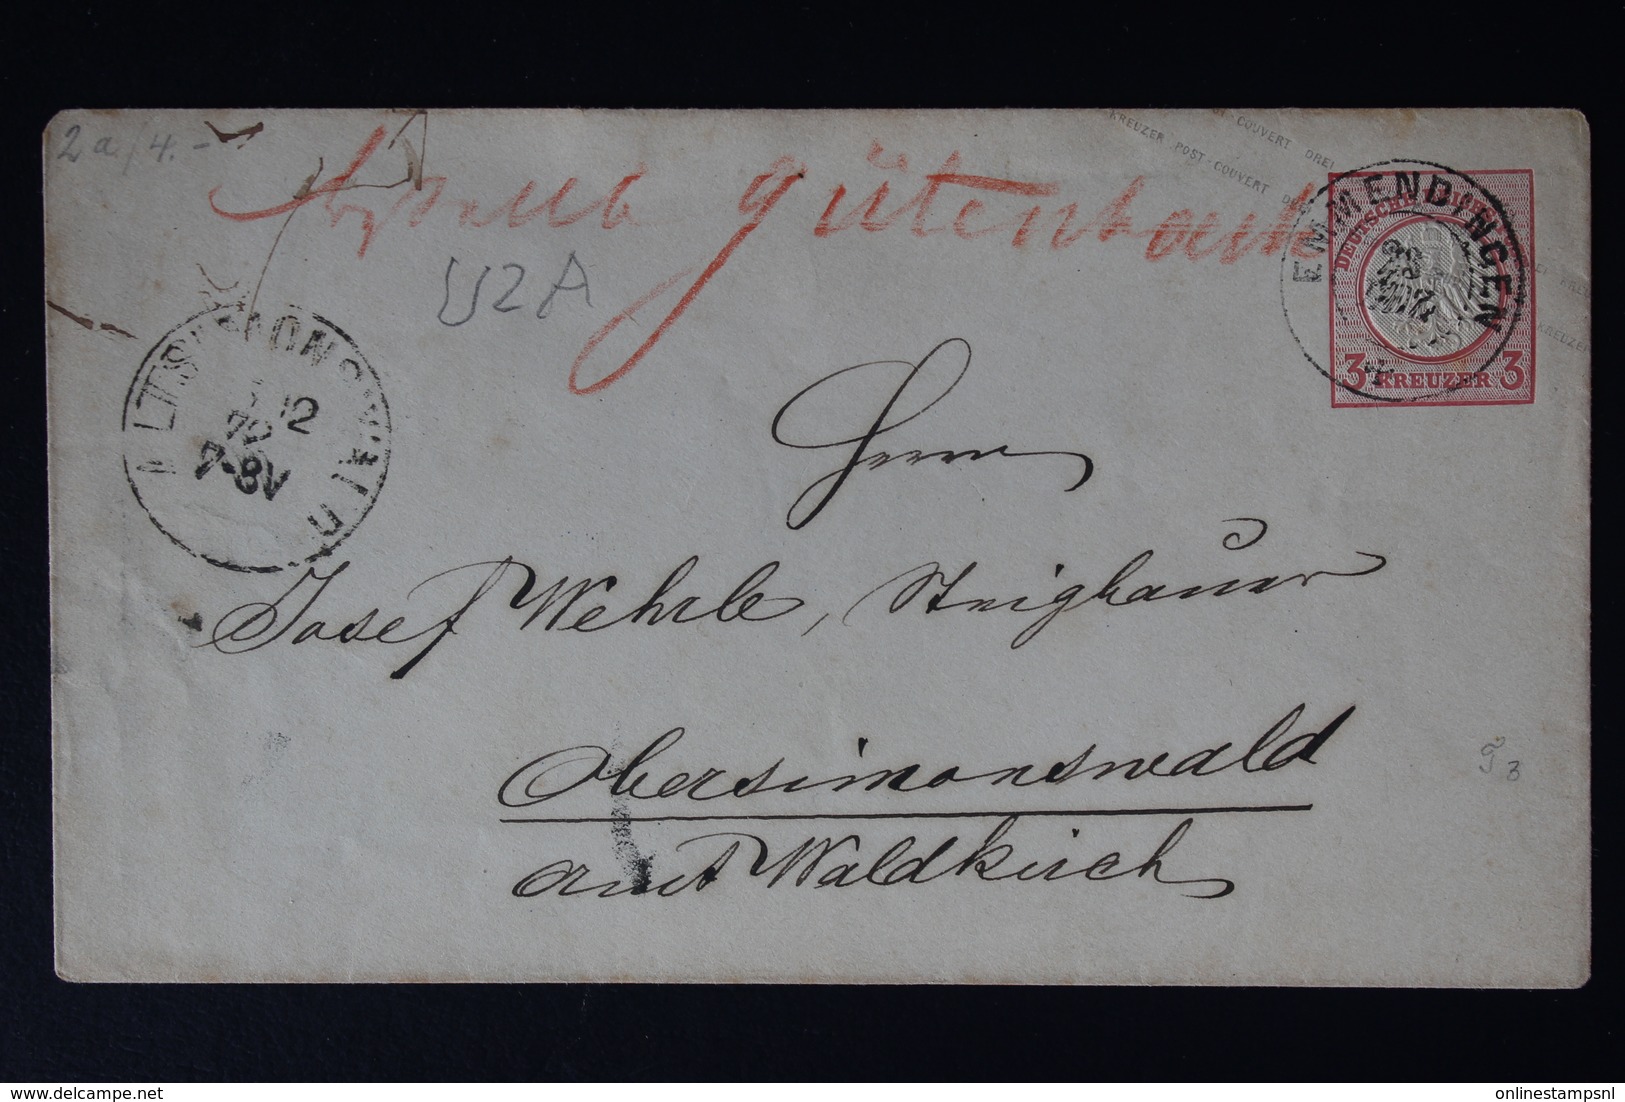 2a/4.-
gütenbach
U2A
KREUZER · POST · COUVERT DREI
COUVERT DREI
EMMENDINGEN
DEUTSCHE
3 KREUZER 3
ALTSIMONSWALD
12
72
7-8V
Herrn
Josef Wehrle, Steighauer
Obersimonswald
Amt Waldkirch
onlinestampsnl